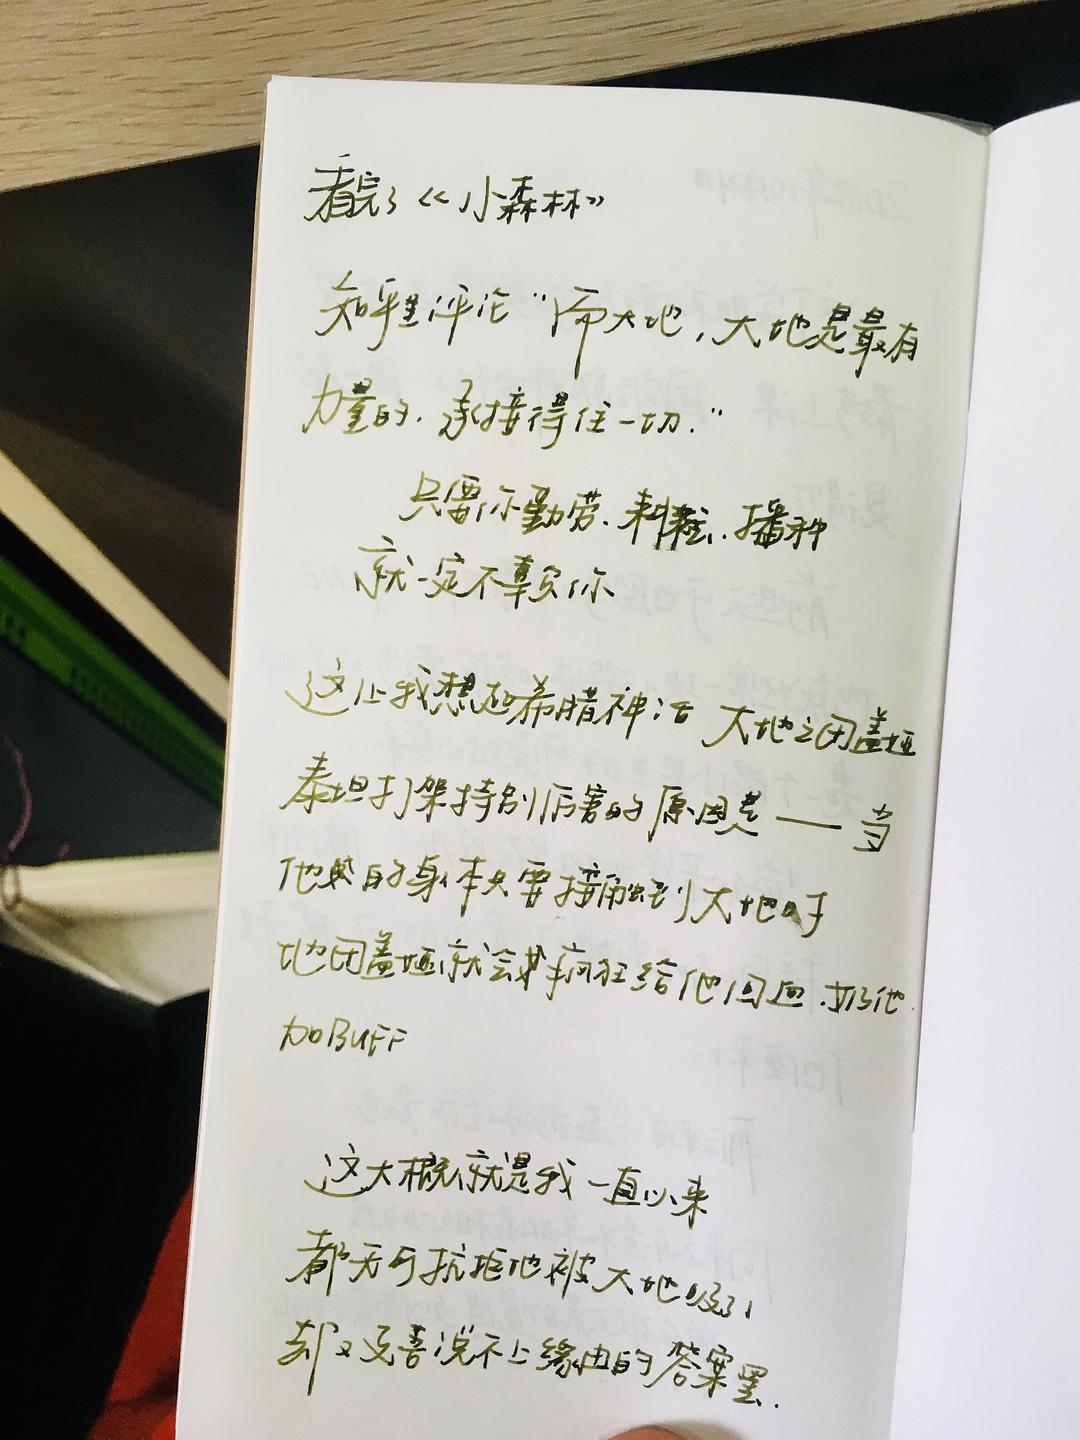 看完了《小森林》
知乎里评论“而大地,大地是最有
力量的.承接得住一切.”
只要你勤劳、耕耘、播种
就一定不辜负你
这让我想起希腊神话 大地之母盖娅
泰坦打架特别厉害的原因是——当
他的身体只要接触到大地时
地母盖娅就会疯狂给他回血.奶他.
加BUFF
这大概就是我一直以来
都无可抗拒地被大地吸引
却又说不上缘由的答案罢.